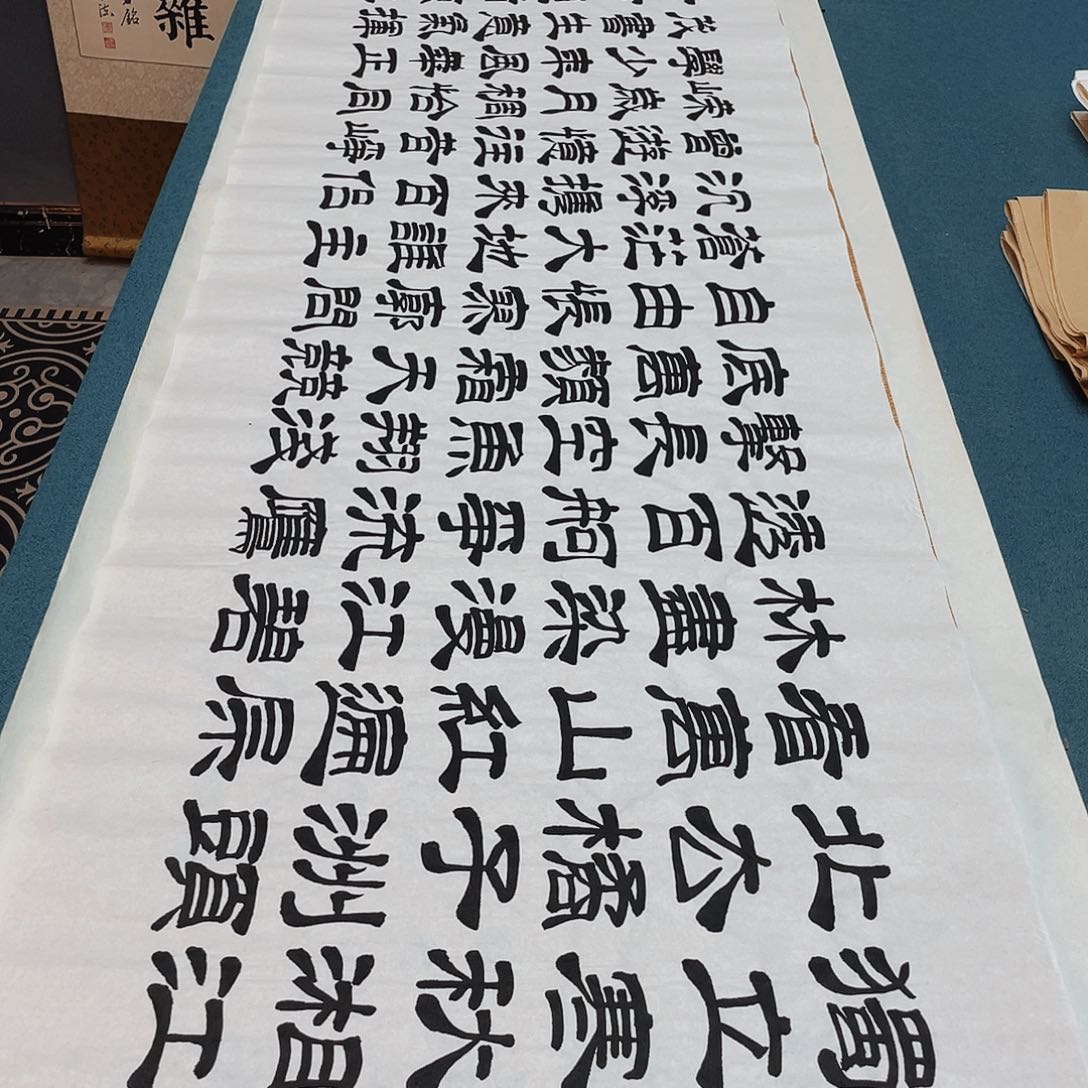 獨立寒秋湘江
北去橘子洲頭
看萬山紅遍層
林盡染漫江碧
透百舸爭流鷹
擊長空魚翔淺
底萬類霜天競
自由悵寥廓問
蒼茫大地誰主
沉浮攜來百侶
曾遊憶往昔崢
嶸歲月稠恰同
學少年風華正
茂書生意氣揮
雜
銘